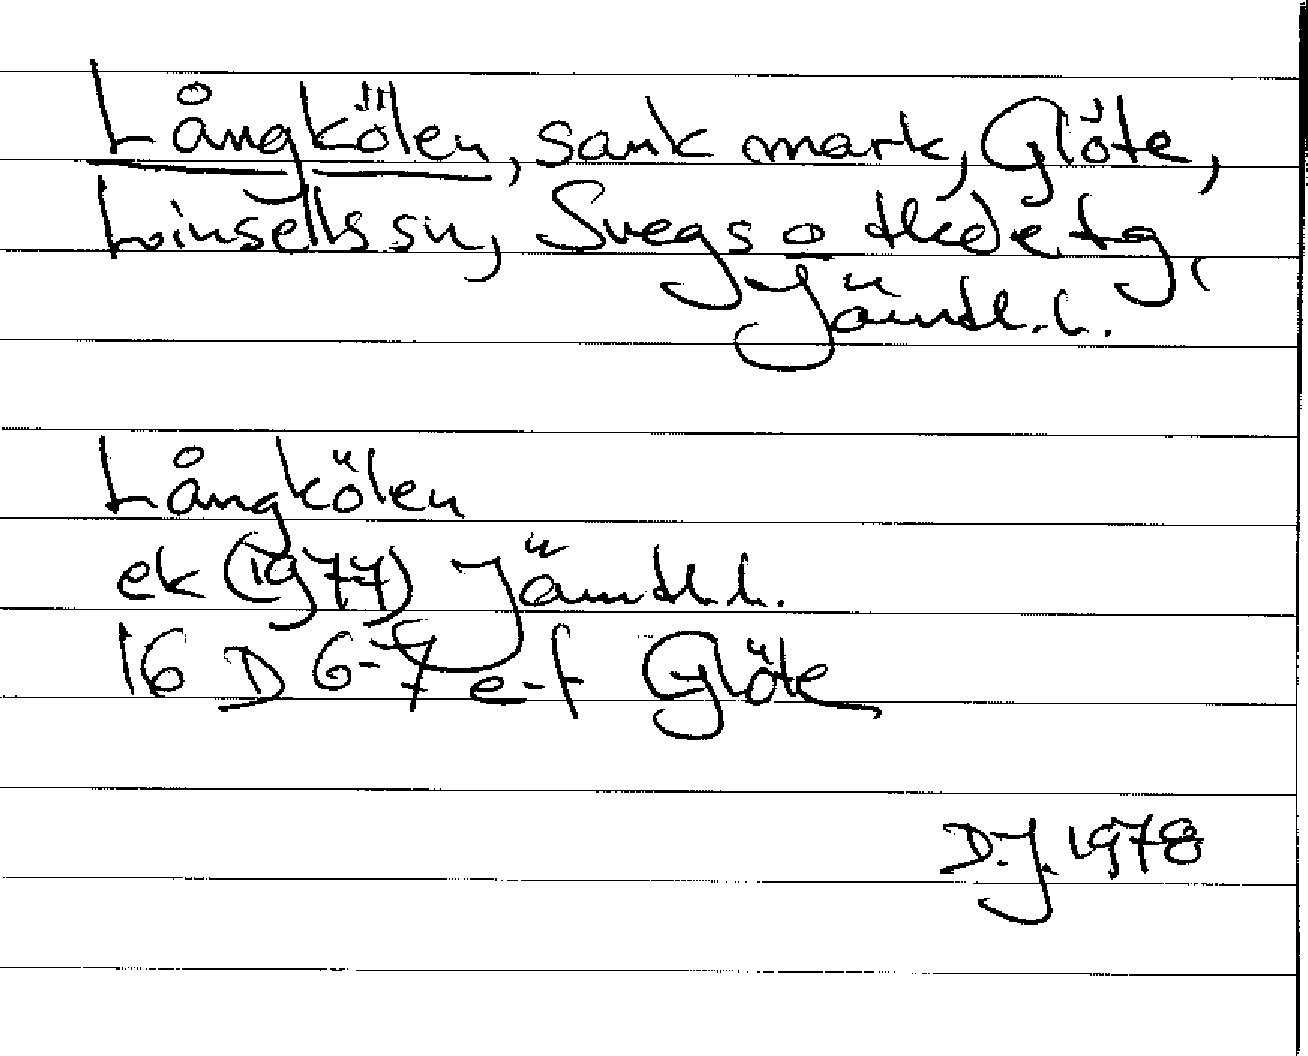 Långkölen, sank mark, Glöte,
Linsells sn, Svegs o Hede tg,
Jämtl. l.
Långkölen
ek (1977) Jämtl. l.
16 D 6-7 e-f Glöte
D.J. 1978